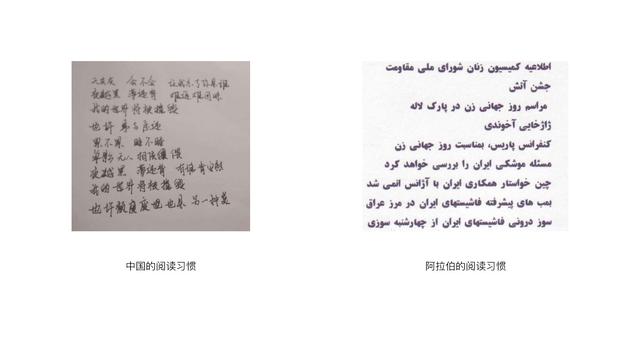 天灰灰 会不会 让我忘了你是谁
夜越黑 梦违背 难追难回味
我的世界将被摧毁
也许事与愿违
累不累 睡不睡
单影无人相依偎
夜越黑 梦违背 有谁肯安慰
我的世界将被摧毁
也许颓废也是 另一种美
اطلاعیه کمیسیون زنان شورای ملی مقاومت
جشن آتش
مراسم روز جهانی زن در پارک لاله
ژاژخایی آخوندی
کنفرانس پاریس، بمناسبت روز جهانی زن
مسئله موشکی ایران را بررسی خواهد کرد
چین خواستار همکاری ایران با آژانس اتمی شد
بمب های پیشرفته فاشیستهای ایران در مرز عراق
سوز درونی فاشیستهای ایران از چهارشنبه سوزی
中国的阅读习惯
阿拉伯的阅读习惯